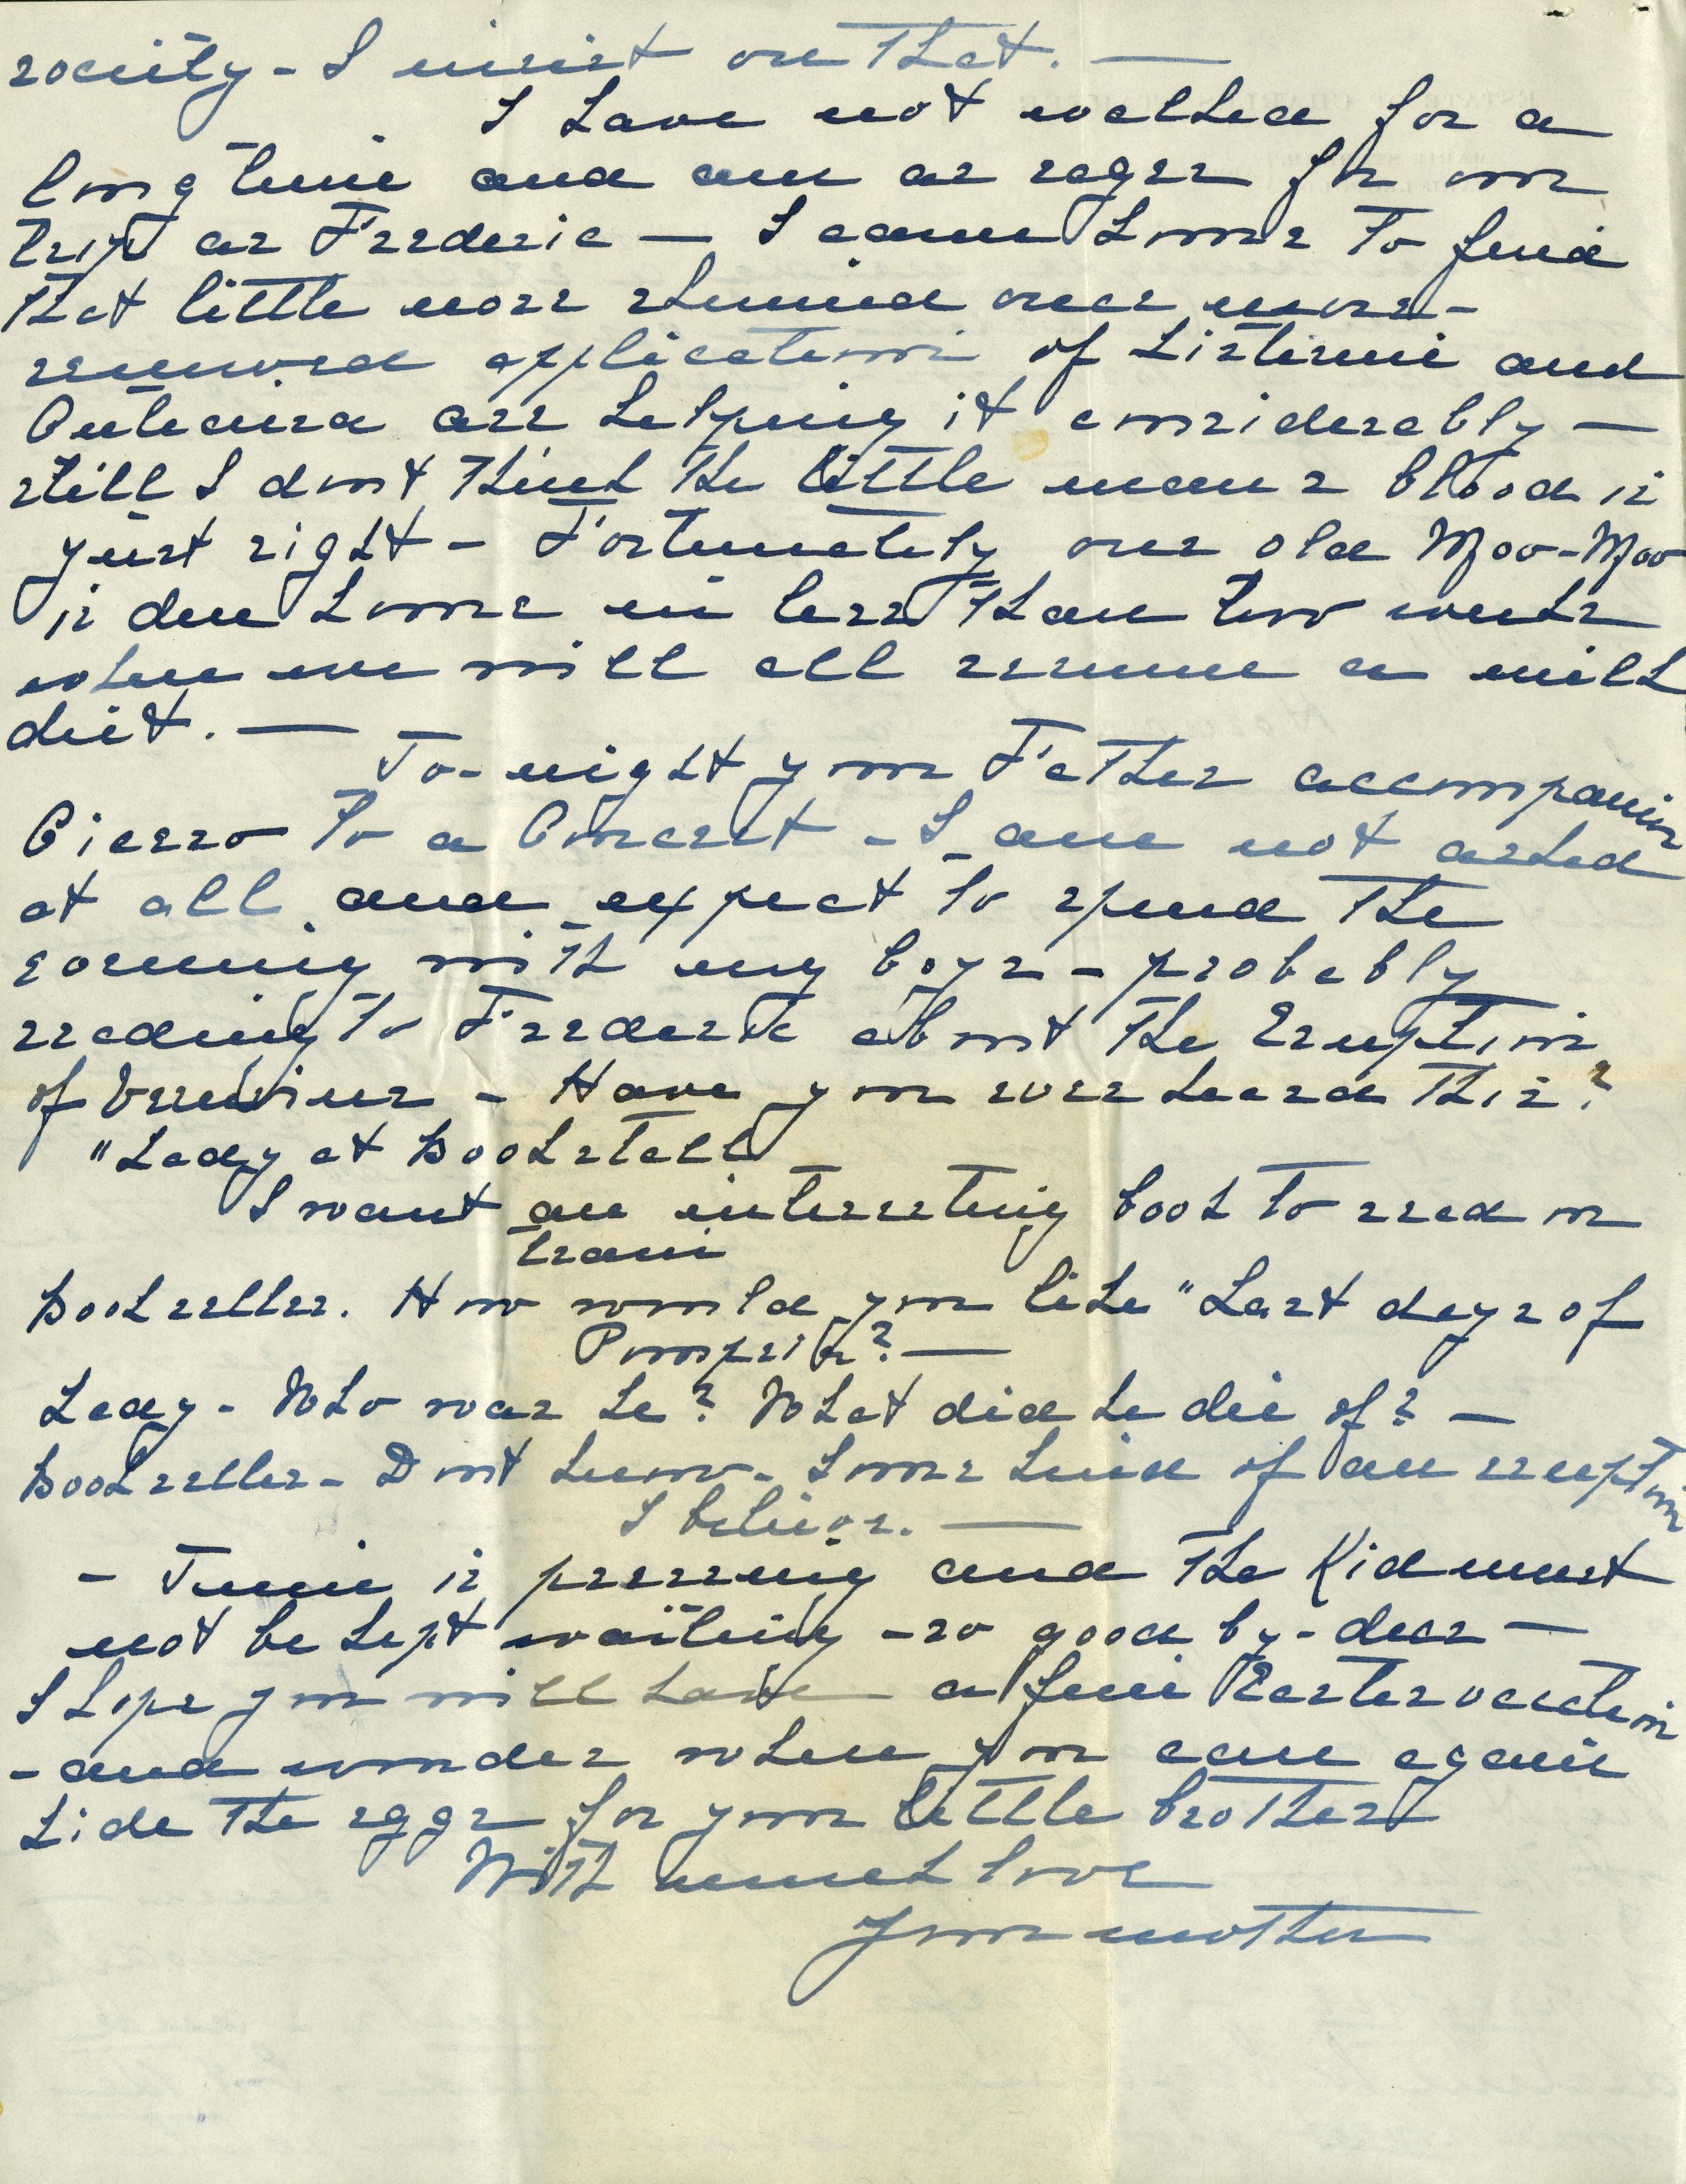 society - I insist on that. —
I have not walked for a
long time and am as eager for our
trip as Frederic — I came home to find
that little nose skinned once more -
renewed applications of Listerine and
Cuticura are helping it considerably —
still I don't think the little man's blood is
just right - Fortunately our old Moo-Moo
is due home in less than two weeks
when we will all resume a milk
diet. —
To-night your Father accompanies
Cierro to a Concert - I am not asked
at all and expect to spend the
evening with my boys - probably
reading to Frederic about the Eruption
of Vesuvius - Have you ever heard this?
"Lady at Bookstall
I want an interesting book to read on
train
Bookseller. How would you like "Last days of
Pompeii"? —
Lady - Who was he? What did he die of? —
Bookseller - Don't know - Some kind of an eruption
I believe. —
- Time is pressing and the Kid must
not be kept waiting - so good by - dear —
I hope you will have a fine Easter vacation
- and wonder when you can again
hide the eggs for your little brother
With much love
Your mother